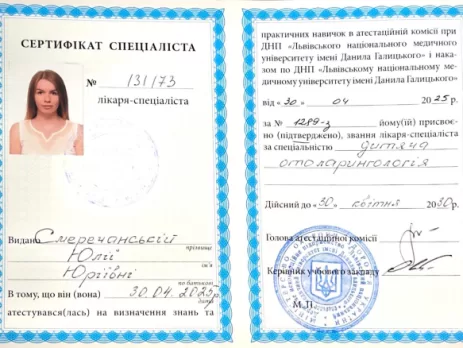 СЕРТИФІКАТ СПЕЦІАЛІСТА
№ 131/73
лікаря-спеціаліста
Видано Смеречанській
прізвище
Юлії
ім'я
Юріївні
по батькові
В тому, що він (вона) 30.04.2025р.
дата
атестувався(лась) на визначення знань та
практичних навичок в атестаційній комісії при
ДНП «Львівського національного медичного
університету імені Данила Галицького» і нака-
зом по ДНП «Львівському національному ме-
дичному університеті імені Данила Галицького»
від «30» 04 2025р.
за № 1289-з йому(їй) присвоє-
но (підтверджено), звання лікаря-спеціаліста
за спеціальністю дитяча
отоларингологія
Дійсний до «30» квітня 2030р.
Голова атестаційної комісії
Керівник учбового закладу
М.П.